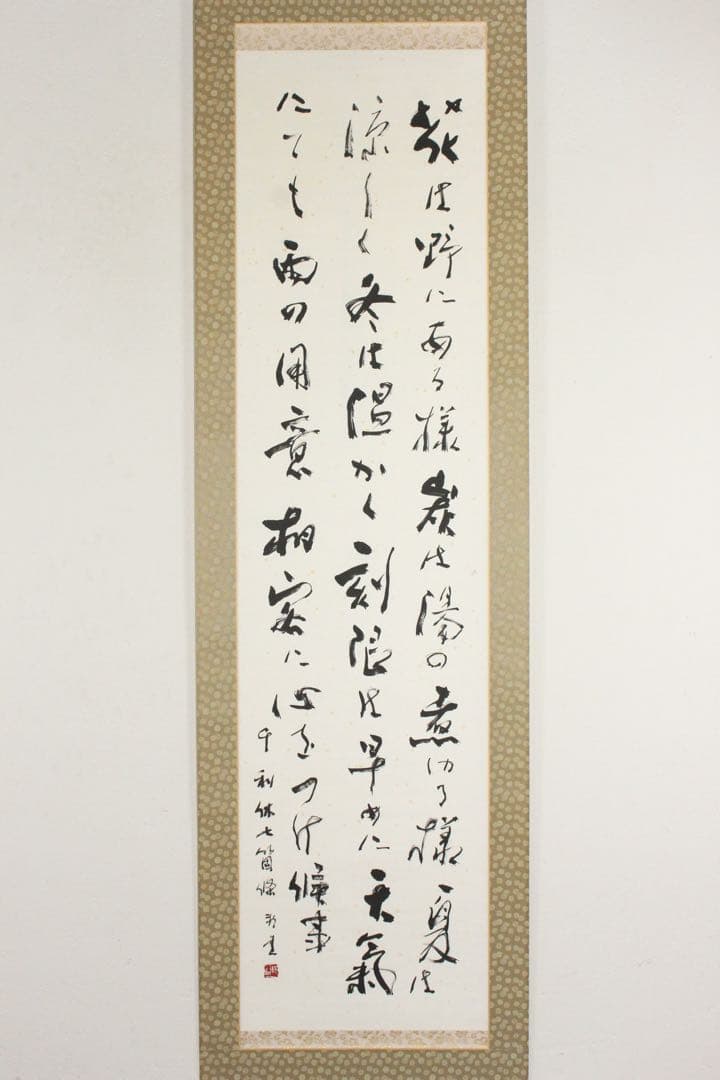 花は野にある様炭は湯の煮ける様夏は
涼しく冬は温かく刻限は早めに天氣
にても雨の用意相客に心をつけ候事
千利休七箇條